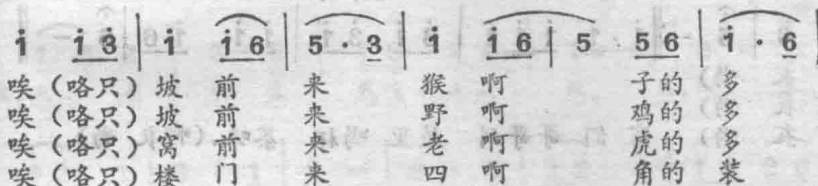 i i 3 | i i 6 | 5 · 3 | i i 6 | 5 5 6 | i · 6
唉（咯只）坡 前 来 猴 啊 子的 多
唉（咯只）坡 前 来 野 啊 鸡的 多
唉（咯只）窝 前 来 老 啊 虎的 多
唉（咯只）楼 门 来 四 啊 角的 装